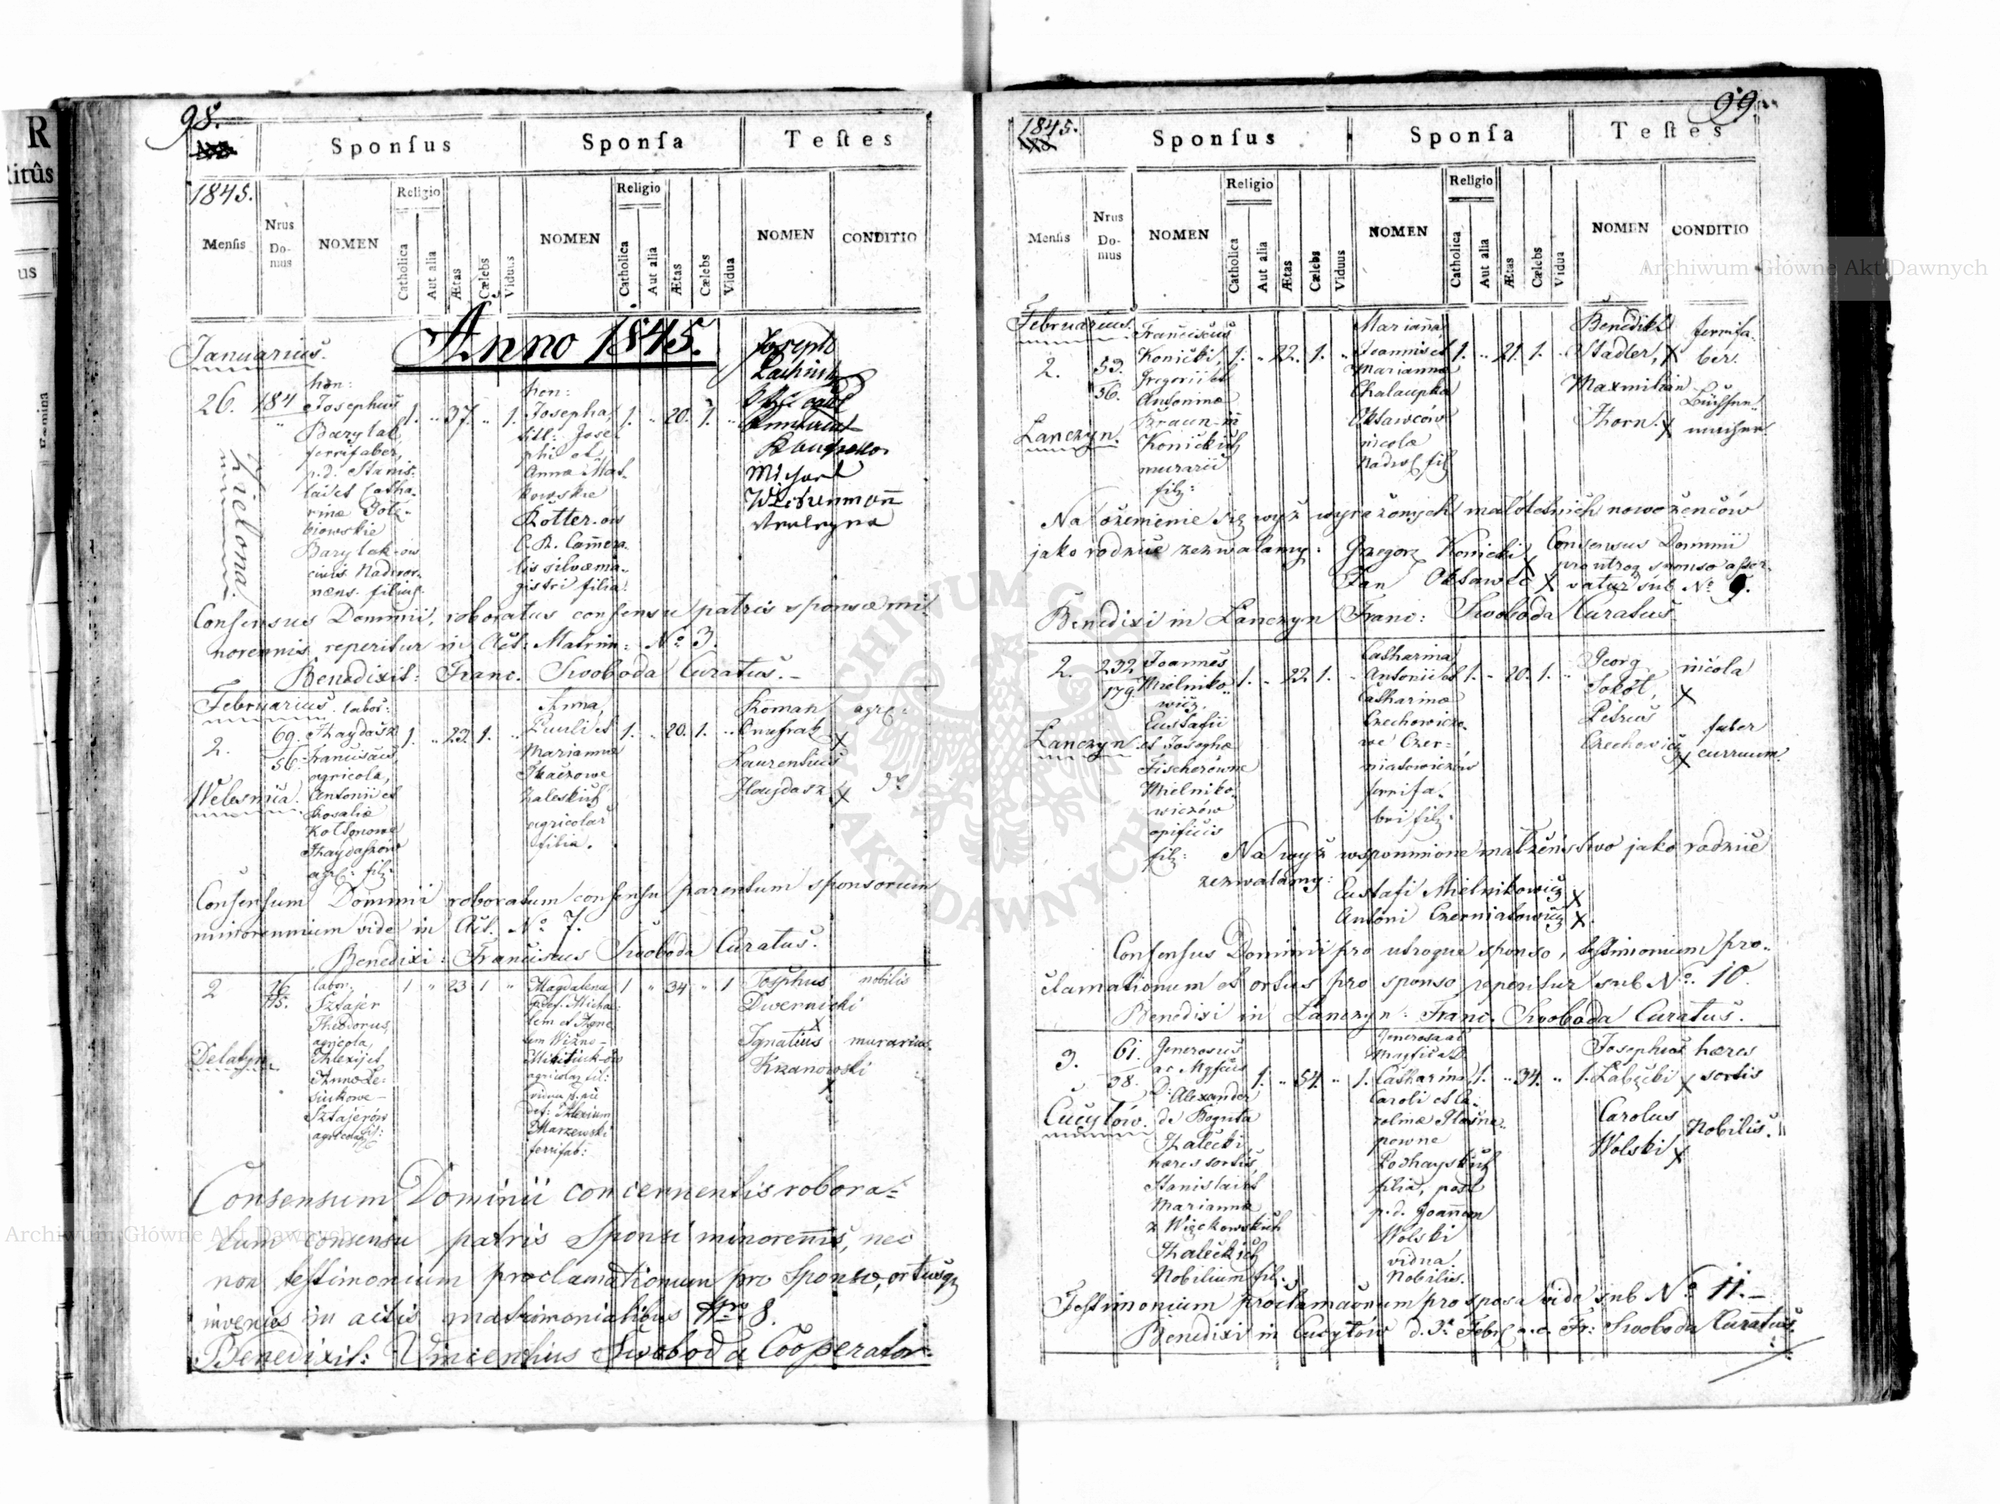 98.
Sponſus
Sponſa
Teſtes
1845.
Menſis
Nrus Do-mus
NOMEN
Religio
Catholica
Aut alia
Ætas
Cælebs
Viduus
NOMEN
Religio
Catholica
Aut alia
Ætas
Cælebs
Vidua
NOMEN
CONDITIO
Anno 1845.
Januarius.
26.
184
Zielona.
hon:
Josephus
Barylak,
ferrifaber,
p. d. Stanis-
lai et Catha-
rinæ
Barylak-ów
civis Nadvor-
nens. filius
1. „ 37. „ 1.
hon:
Josepha,
titl: Jose-
phi et
Annæ Mał-
kowskie
Kotter-ów
C. R. Camera-
lis silvæma-
gistri filia.
1. „ 20. 1. „
Joseph
Michael
Consensus Dominii, roboratus consensu patris sponsæ mi-
norennis, reperitur in Act: Matrim: No 3.
Benedixit: Franc. Swoboda Curatus. –
Februarius.
2.
69.
56.
Welesnica.
labor:
Haydasz
Franciscus
agricola,
Antonii et
Rosaliæ
Haydaszów
agr: fil:
1. „ 22. 1. „
Anna,
Pauli et
Mariannæ
Tkaczowe
Zaleskich
agricolar
filia.
1. „ 20. 1. „
Roman
Onufrak
X
agric:
Laurentius
Haydasz X
do
Consensum Dominii roboratum consensu parentum sponsorum
minorennium vide in Act. No 7.
Benedixi: Franciscus Swoboda Curatus.
2
76
15.
Delatyn
labor.
Sztajer
Theodorus,
agricola,
Alexii et
Anna Le-
siukowe –
Sztajerów
agricolar fil:
1 „ 23 1 „
Magdalena
Michae-
lem et Agne-
tem Wizno-
Mikitiuk-ów
agricolar fil:
vidua p.
def: Alexium
Marzewski
ferrifab:
1 „ 34 „ 1
Josephus
Dwernicki
X
nobilis
Ignatius
Krzanowski
X
murarius.
Consensum Dominii concernentis robora-
tum consensu patris Sponsi minorennis, nec
non testimonium proclamationum pro Sponso, ortusq
invenies in actis matrimonialibus Nro 8.
Benedixit: Vincentius Swoboda Cooperator.
99.
1845.
Sponſus
Sponſa
Teſtes
Menſis
Nrus Do-mus
NOMEN
Religio
Catholica
Aut alia
Ætas
Cælebs
Viduus
NOMEN
Religio
Catholica
Aut alia
Ætas
Cælebs
Vidua
NOMEN
CONDITIO
Februarius.
2.
53.
56.
Lanczyn.
Franciscus
Konicki,
Gregorii et
Antoninæ
Braun-
Konickich
murarii
fil:
1. „ 22. 1. „
Marianna
Joannis et
Mariannæ
Chalaupka
Oktawców
ricola
fil
1. „ 21. 1. „
Benedikt
Stadler, X
ferrifa-
ber.
Maxmilian
Thorn. X
Büchsen-
macher
Na ożenienie się wyż wyrażonych małoletnich nowożeńców
jako rodzice zezwalamy: Grzegorz Konicki X
Jan Oktawec X
Consensus Dominii
pro utroq sponso asser-
vatur sub No 9.
Benedixi in Lanczyn Franc: Swoboda Curatus
2.
232
179
Lanczyn
Joannes
Mielniko-
wicz,
Eustafii
et Josephæ
Fischerówne
Mielniko-
wiczów
opificis
fil:
1. „ 22. 1. „
Catharina,
Antonii et
Catharinæ
Czechowicze-
we Czer-
niatowiczów
ferrifa-
bri fil:
1. „ 20. 1. „
Georg
Sokół,
X
Petrus
Czechowicz
X
faber
curruum.
Na wyż wspomnione małżeństwo jako rodzice
zezwalamy:
Eustafi Mielnikowicz X
Antoni Czerniatowicz X.
Consensus Dominii pro utroque sponso, testimonium pro-
clamationum et ortus pro sponso, reperitur sub No. 10.
Benedixi in Lanczyn: Franc. Swoboda Curatus.
3.
61.
38.
Cucyłów.
Generosus
ac Mgficus
D. Alexander
de Boguta
Załęcki
hæres sortis,
Stanislai et
Mariannæ
z Więckowskich
Załeckich
Nobilium fil:
1. „ 54. „ 1.
Generosa ac
Magfica D.
Catharina,
Caroli et Ca-
rolinæ
Podhayskich
filia, post
p. d. Joannem
Wolski
vidua.
Nobilis.
1. „ 34. „ 1.
Josephus
X
hæres
sortis
Carolus
Wolski X
Nobilis.
Testimonium proclamaonum pro sposa vide sub No 11. –
Benedixi in Cucyłów d. 3. Febr. a. c. Fr: Swoboda Curatus.
Archiwum Główne Akt Dawnych
Archiwum Główne Akt Dawnych
ARCHIWUM GŁÓWNE AKT DAWNYCH